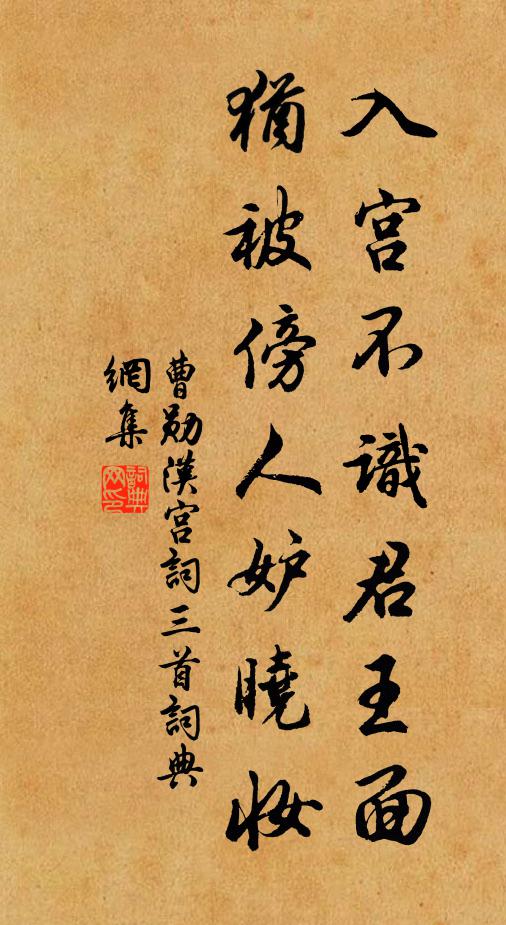 入宮不識君王面
猶被傍人妒曉妝
曹勛漢宮詞三首詞典
網集
詞典
网印